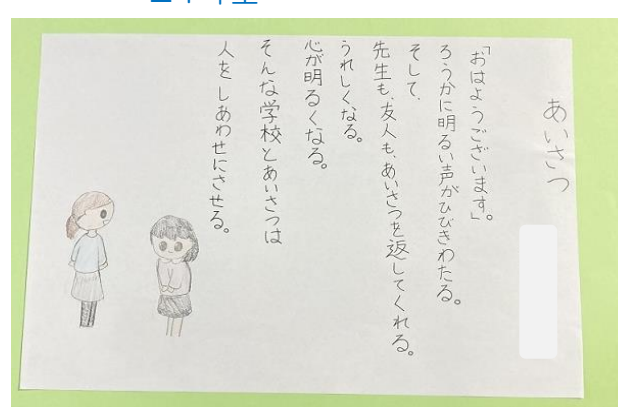 あいさつ
「おはようございます。」
ろうかに明るい声がひびきわたる。
そして、
先生も、友人も、あいさつを返してくれる。
うれしくなる。
心が明るくなる。
そんな学校とあいさつは
人をしあわせにさせる。